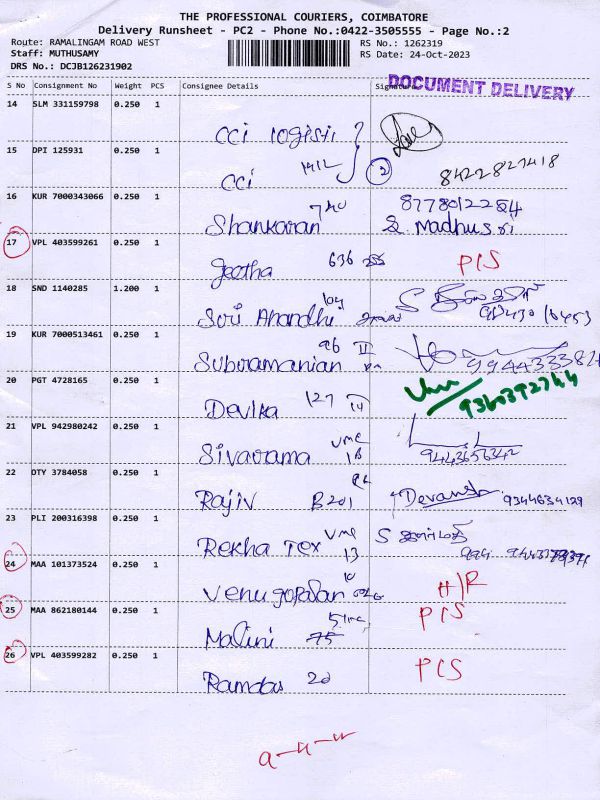 THE PROFESSIONAL COURIERS, COIMBATORE
Delivery Runsheet - PC2 - Phone No.:0422-3505555 - Page No.:2
Route: RAMALINGAM ROAD WEST
RS No.: 1262319
Staff: MUTHUSAMY
RS Date: 24-Oct-2023
DRS No.: DCJB126231902
DOCUMENT DELIVERY
S No Consignment No Weight PCS Consignee Details
14 SLM 331159798 0.250 1
CCI logisti
15 DPI 125931 0.250 1
CCI 1412 2 8422827418
16 KUR 7000343066 0.250 1
Shankaran 740 8778012284
Madhusri
17 VPL 403599261 0.250 1
Geetha 636 PCS
18 SND 1140285 1.200 1
Sori Anandhi 104
19 KUR 7000513461 0.250 1
Subramanian 96 II
20 PGT 4728165 0.250 1
Devika 127 9360392744
21 VPL 942980242 0.250 1
Sivarama VMC 18 9443656342
22 DTY 3784058 0.250 1
Rajiv B201 Devansh 9344634129
23 PLI 200316398 0.250 1
Rekha Tex VMC 13
24 MAA 101373524 0.250 1
Venugopalan 10 H/R
25 MAA 862180144 0.250 1
Malini 75 PCS
26 VPL 403599282 0.250 1
Ramdas 20 PCS